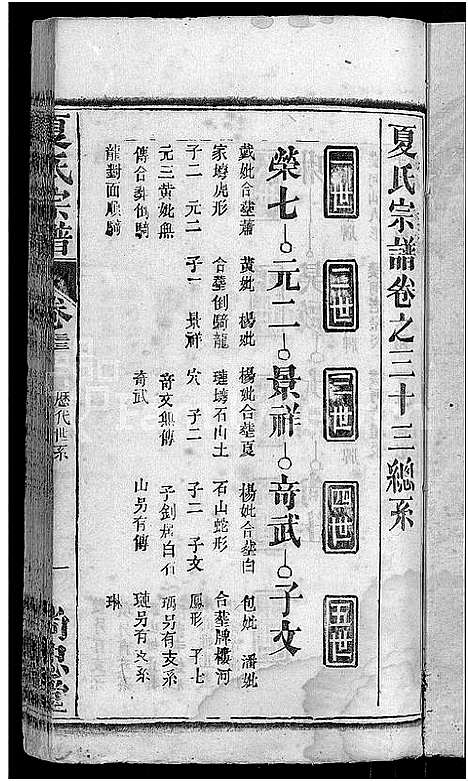 夏氏宗譜卷之三十三總系
一世
二世
三世
四世
五世
榮七
元二
景祥
奇武
子文
戴妣合塟蕭
家塝虎形
子二 元二
元三黃妣無
傳合塟倒騎
龍對面順騎
黃妣 楊妣
合塟倒騎龍
子一 景祥
楊妣合塟真
璉塝石山土
穴 子二
奇文無傳
奇武
楊妣合塟白
石山蛇形
子二 子文
子釗居白石
山另有傳
包妣 潘妣
合塟牌樓河
鳳形 子七
瑀另有支系
璉另有支系
琳
夏氏宗譜
卷三十三
歷代世系
一